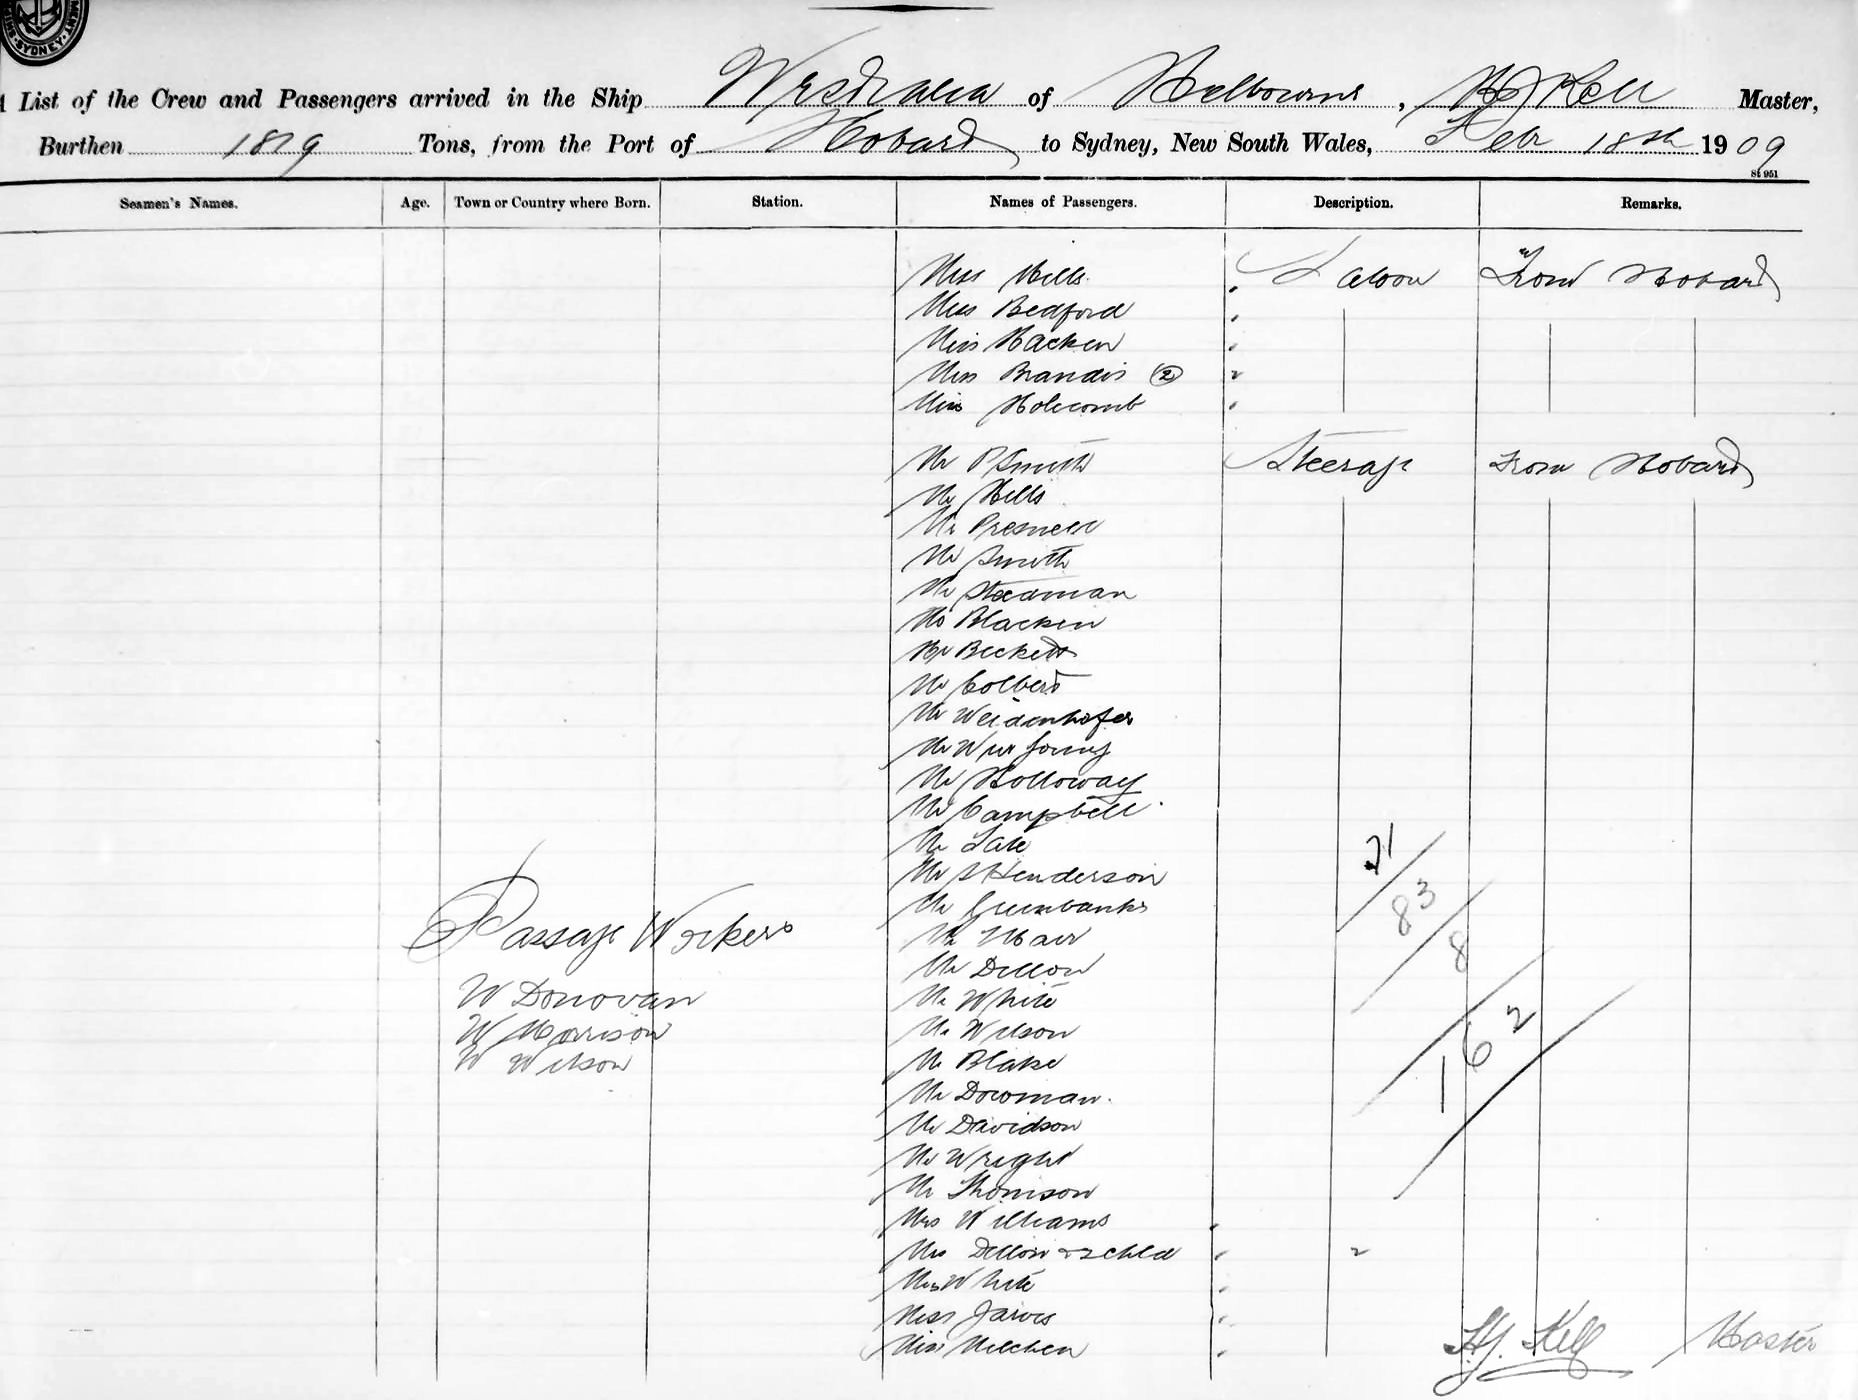 SYDNEY
List of the Crew and Passengers arrived in the Ship Westralia of Melbourne, H J Kell Master,
Burthen 1819 Tons, from the Port of Hobart to Sydney, New South Wales, Feby 18th 1909
St 951
Seamen's Names. Age. Town or Country where Born. Station. Names of Passengers. Description. Remarks.
Miss Mills Saloon From Hobart
Miss Bedford
Miss
Miss Brandis (2) 2
Miss Holcomb
Mr P Smith Steerage From Hobart
Mr Mills
Mr Presnell
Mr Smith
Mr Steadman
Mr
Mr Beckett
Mr Colbert
Mr Weidenhofer
Mr
Mr Holloway
Mr Campbell
Mr 21
Mr Henderson
Mr Greenbanks 83
Passage Workers Mr 8
Mr Dillon
W Donovan Mr White
W Morrison Mr Wilson 162
W Wilson Mr Blake
Mr Dowman
Mr Davidson
Mr Wright
Mr Thomson
Mrs Williams
Mrs Dillon & 2 chld 2
Mrs White
Miss Jarvis
Miss
H.J. Kell Master